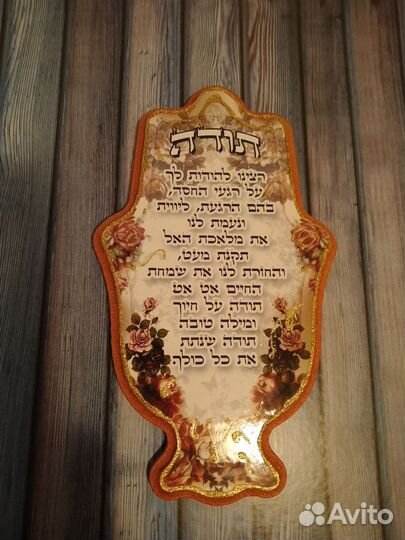 תודה
רצינו להודות לך
על רגעי החסד,
בהם הרגעת, ליווית
ונעמת לנו
את מלאכת האל
תקנת מעט,
והחזרת לנו את שמחת
החיים אט אט
תודה על חיוך
ומילה טובה
תודה שנתת
את כל כולך.
Avito